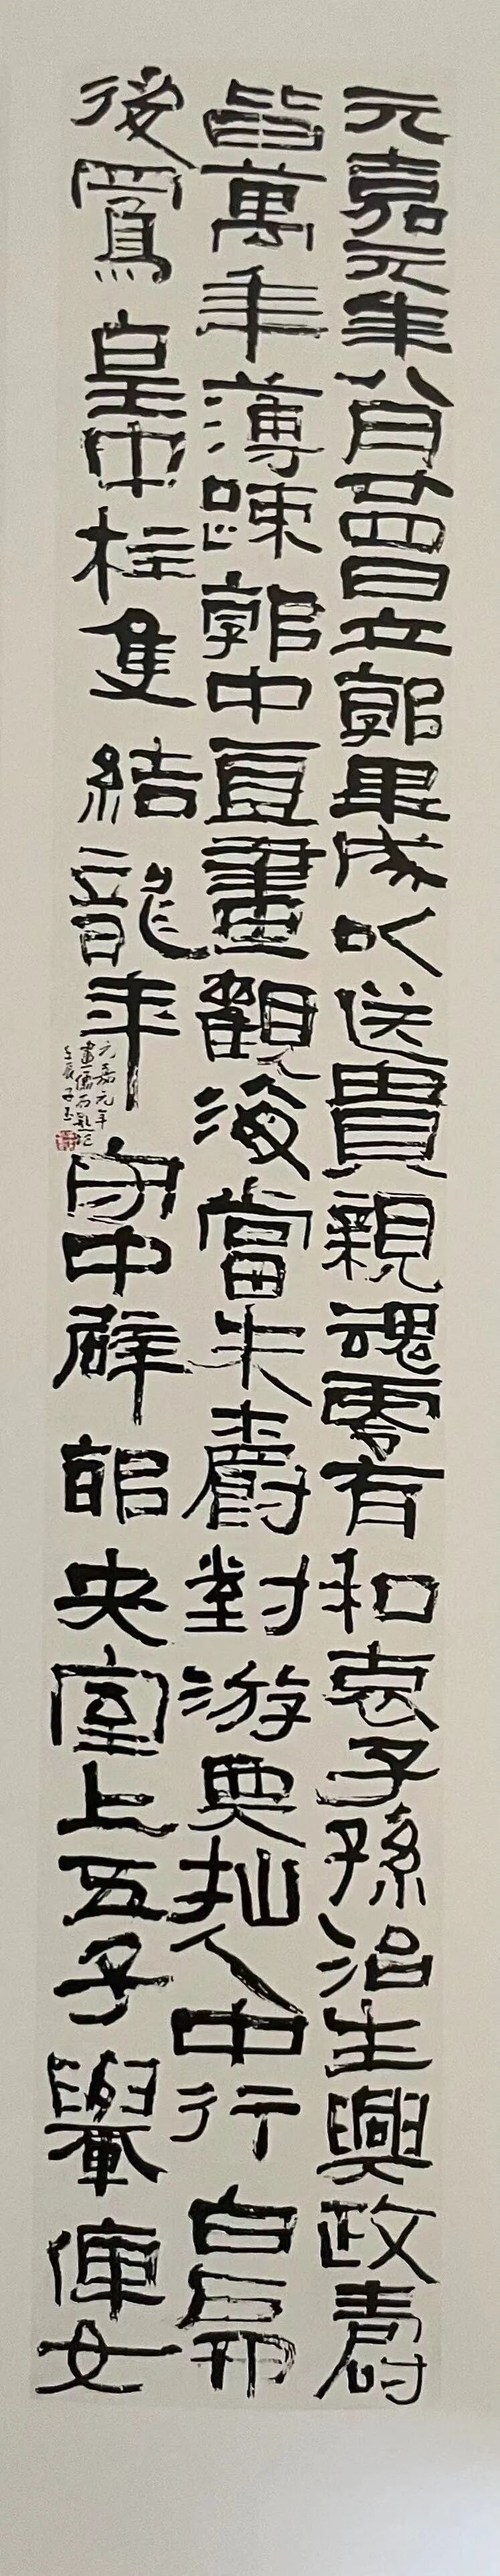 元嘉元年八月廿四日立郭畢成以送貴親魂零有知哀子孫治生興政壽
皆萬年薄踈郭中直畫觀海當朱爵對游人中行白虎
後鳳皇中柱隻結龍年守中辟邪央室上五子轝僮女
元嘉元年
畫像石題記
壬辰子玉